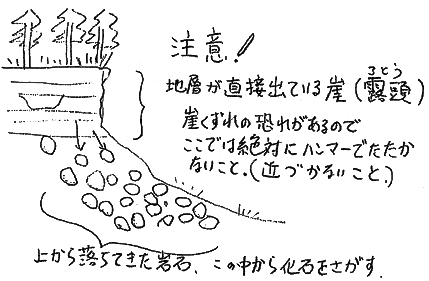 注意!
地層が直接出ている崖(露頭)
ろとう
崖くずれの恐れがあるので
ここでは絶対にハンマーでたたか
ないこと.(近づかないこと.)
上から落ちてきた岩石、この中から化石をさがす.